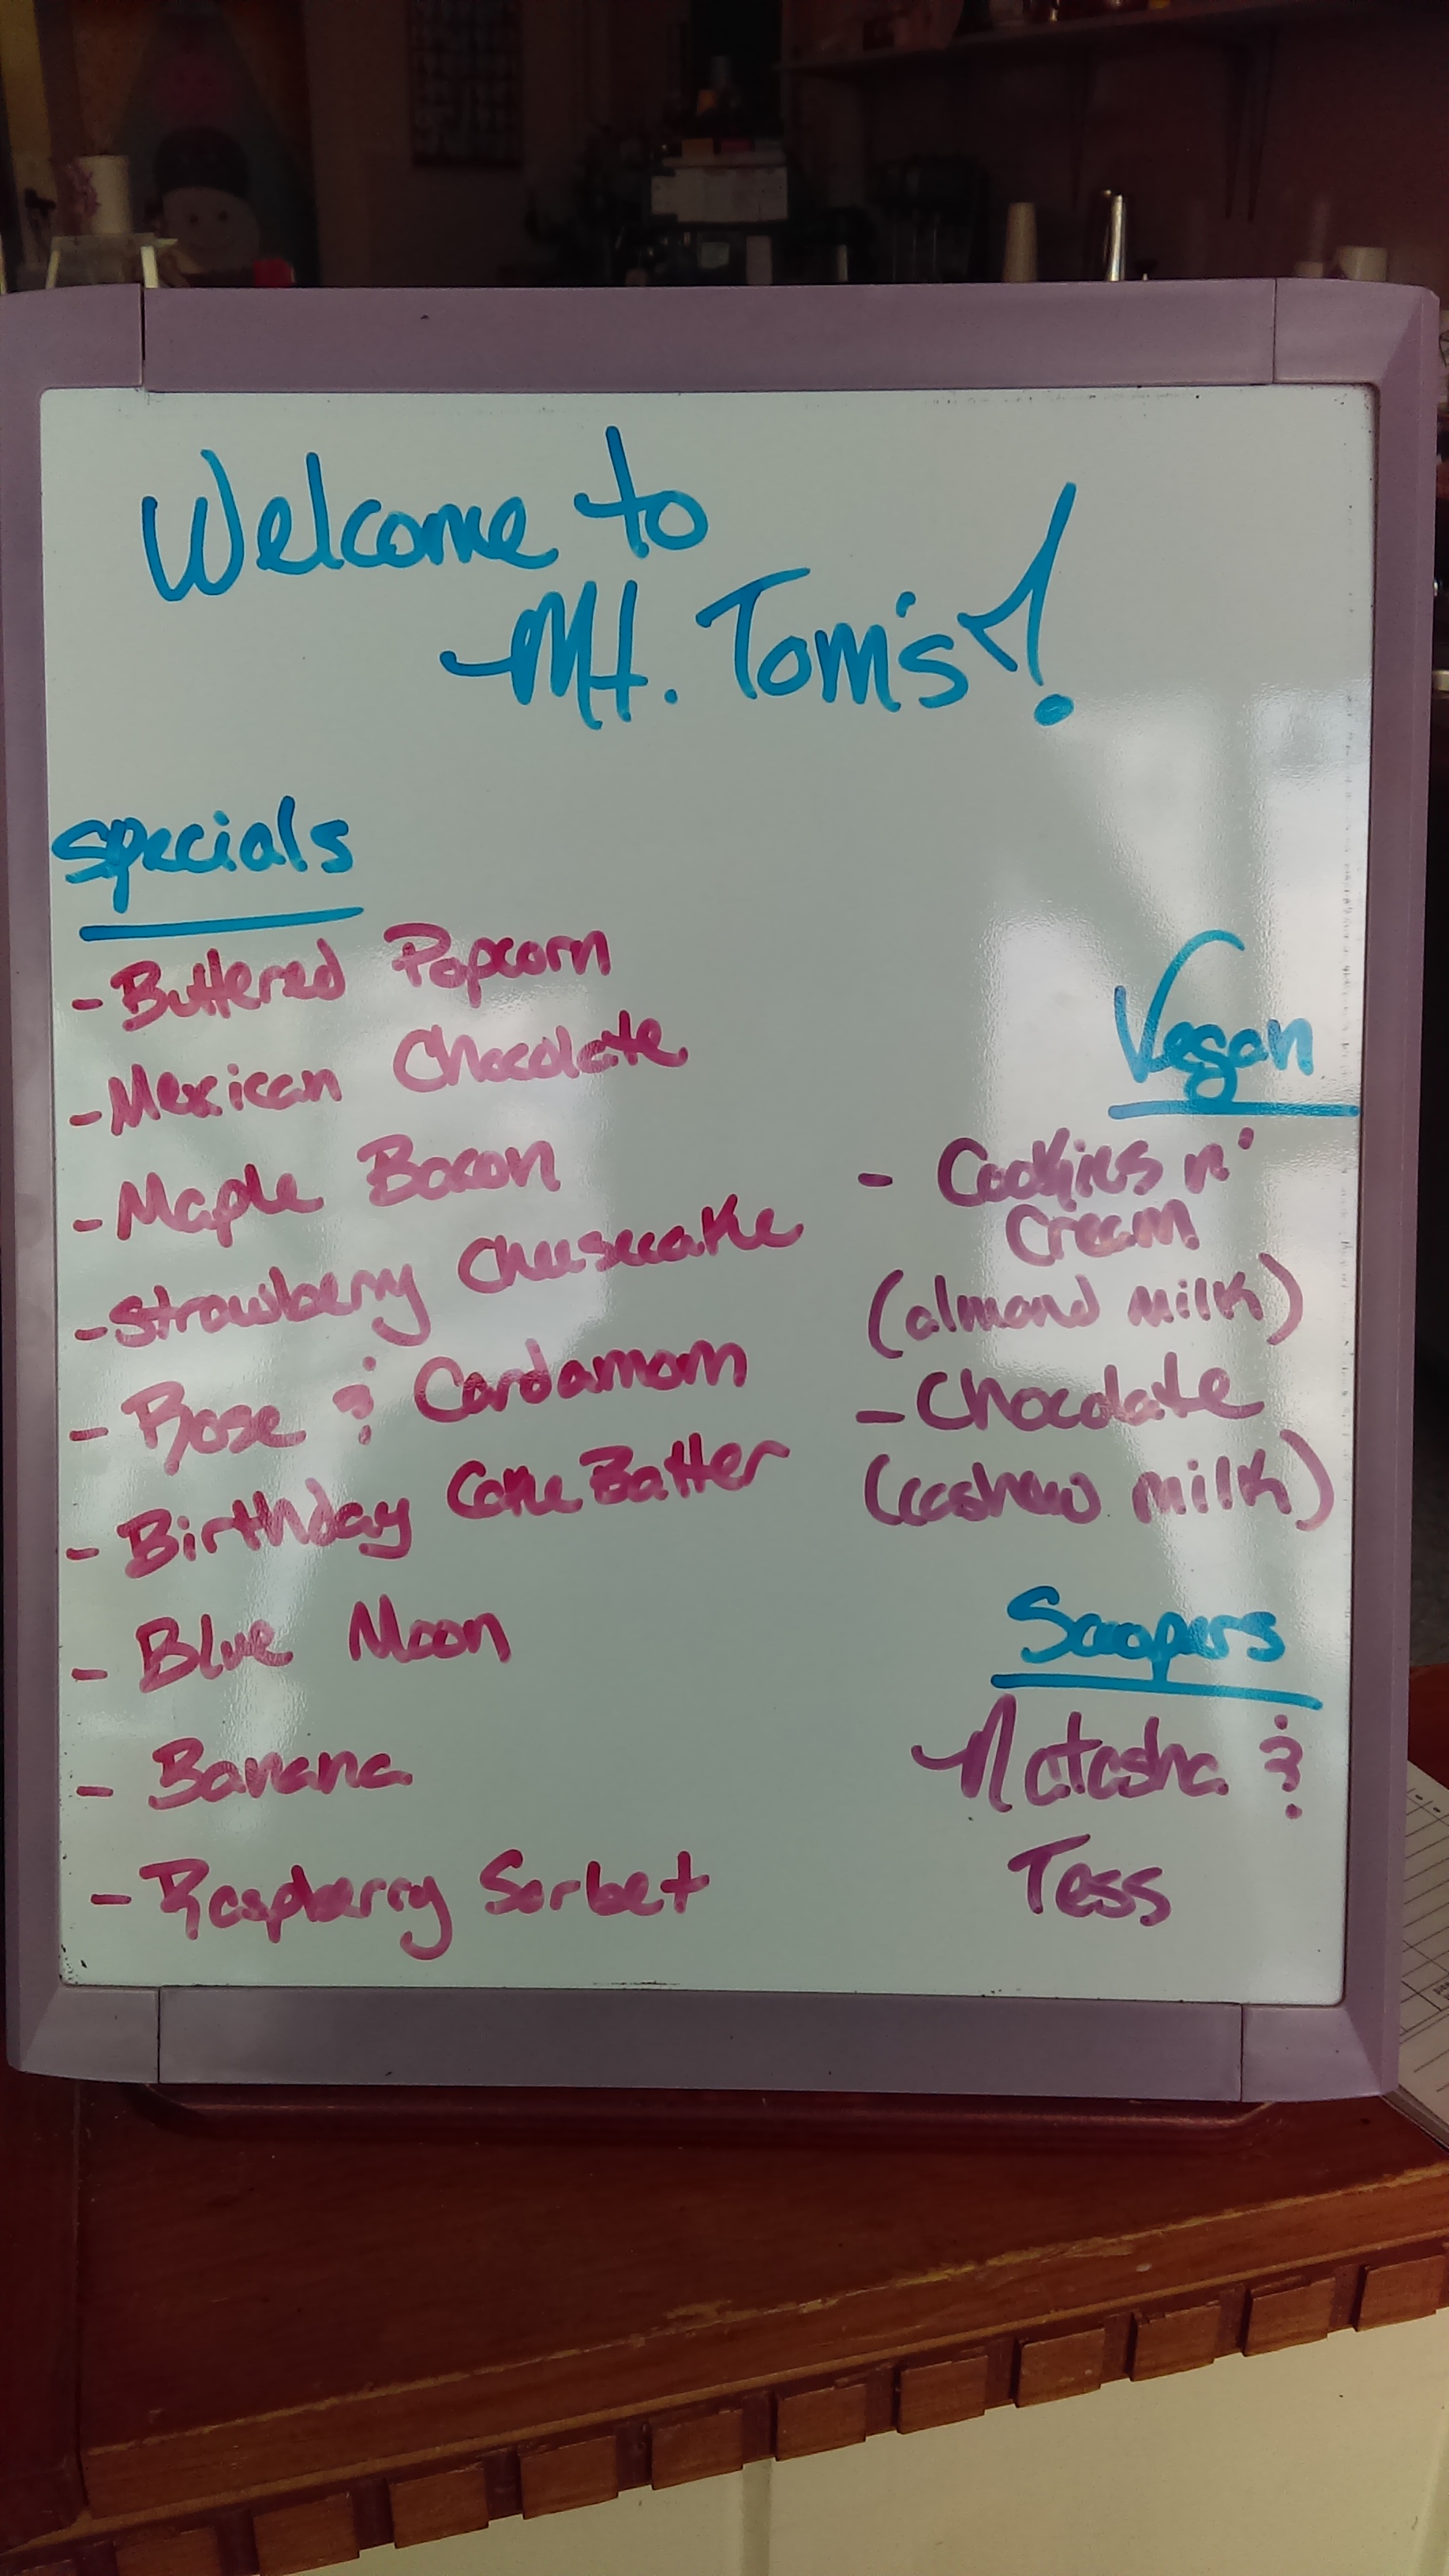 Welcome to
Mt. Tom's!
Specials
- Buttered Popcorn
- Mexican Chocolate
- Maple Bacon
- Strawberry Cheesecake
- Rose & Cardamom
- Birthday Cake Batter
- Blue Moon
- Banana
- Raspberry Sorbet
Vegan
- Cookies n'
Cream
(almond milk)
- Chocolate
(cashew milk)
Scoopers
Natasha &
Tess